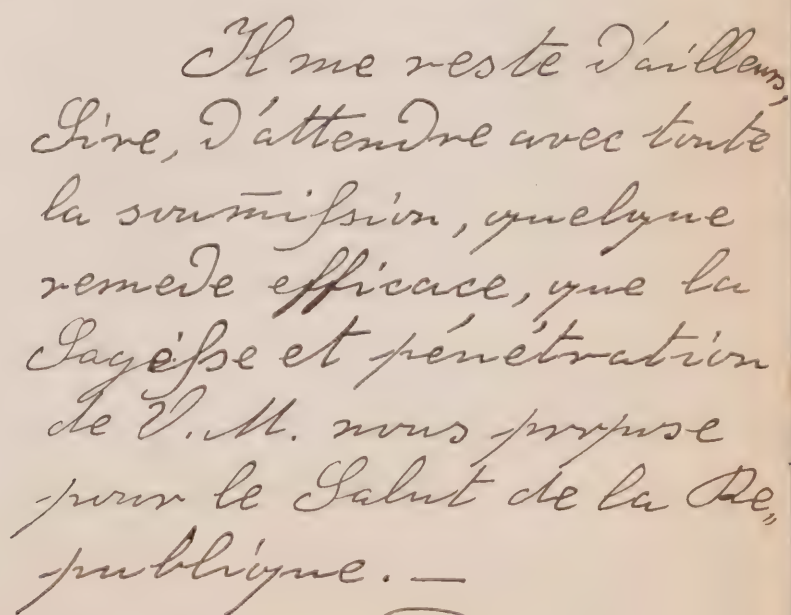 Il me reste d'ailleurs,
Sire, d'attendre avec toute
la soum̄ission, quelque
remede efficace, que la
Sagésse et pénétration
de V. M. nous propose
pour le Salut de la Re„
publique. —